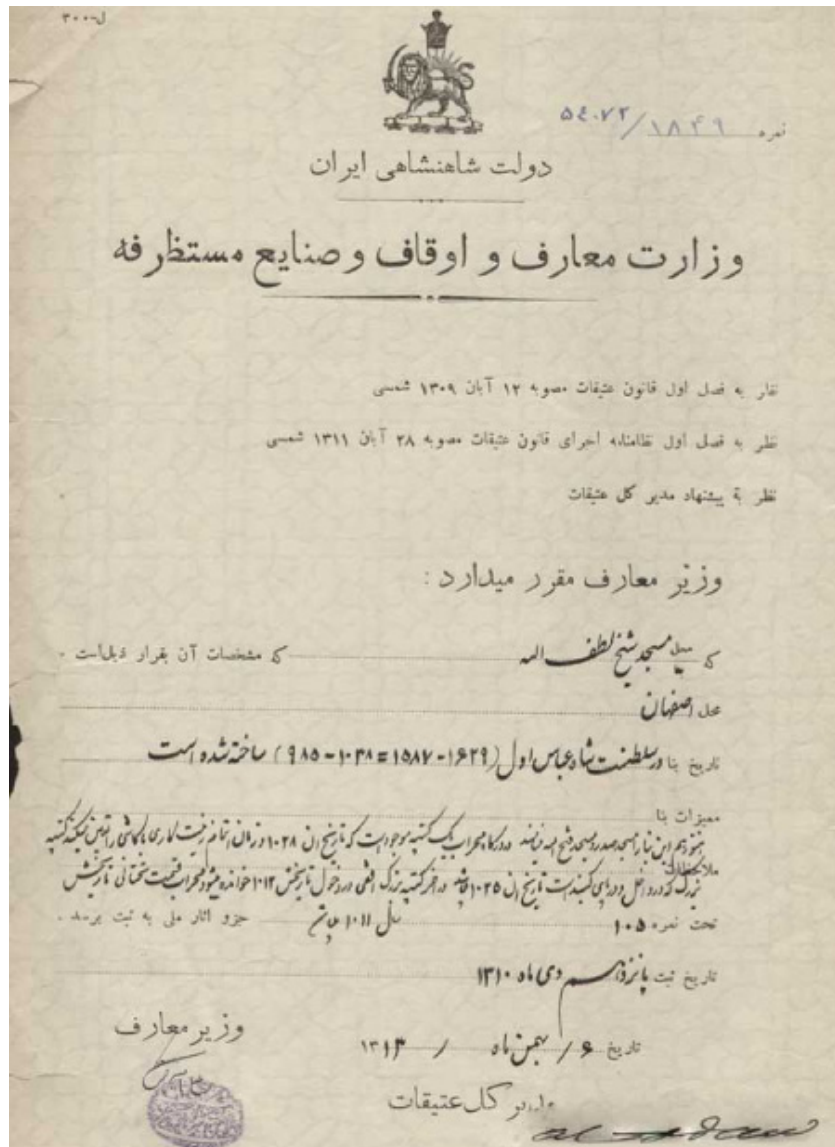 ل-۳۰۰۰
نمره ۵۴۰۷۲/۱۸۴۹
دولت شاهنشاهی ایران
وزارت معارف و اوقاف و صنایع مستظرفه
نظر به فصل اول قانون عتیقات مصوبه ۱۲ آبان ۱۳۰۹ شمسی
نظر به فصل اول نظامنامه اجرای قانون عتیقات مصوبه ۲۸ آبان ۱۳۱۱ شمسی
نظر به پیشنهاد مدیر کل عتیقات
وزیر معارف مقرر میدارد :
که مسجد شیخ لطف الله که مشخصات آن بقرار ذیل است .
محل اصفهان
تاریخ بنا در سلطنت شاه عباس اول (۱۶۲۹-۱۵۸۷=۱۰۳۸-۹۸۵) ساخته شده است
ممیزات بنا
هنوز هم این بنا را مسجد صدر و مسجد فتح الله مینامند در محراب یک کتیبه موجود است که تاریخ آن ۱۰۲۸ و زمان اتمام کاشی را تعیین میکند کتیبه
ملاحظات
بزرگ که در داخل و در پای گنبد است تاریخ آن ۱۰۲۵ در آخر کتیبه بزرگ افقی در دخول تاریخش ۱۰۱۲ خوانده میشود محراب قسمت تحتانی تاریخش
تحت نمره ۱۰۵ سال ۱۰۱۱ جزو آثار ملی به ثبت برسد .
تاریخ ثبت پانزدهم دی ماه ۱۳۱۰
تاریخ ۶ / بهمن ماه / ۱۳۱۳
وزیر معارف
مدیر کل عتیقات